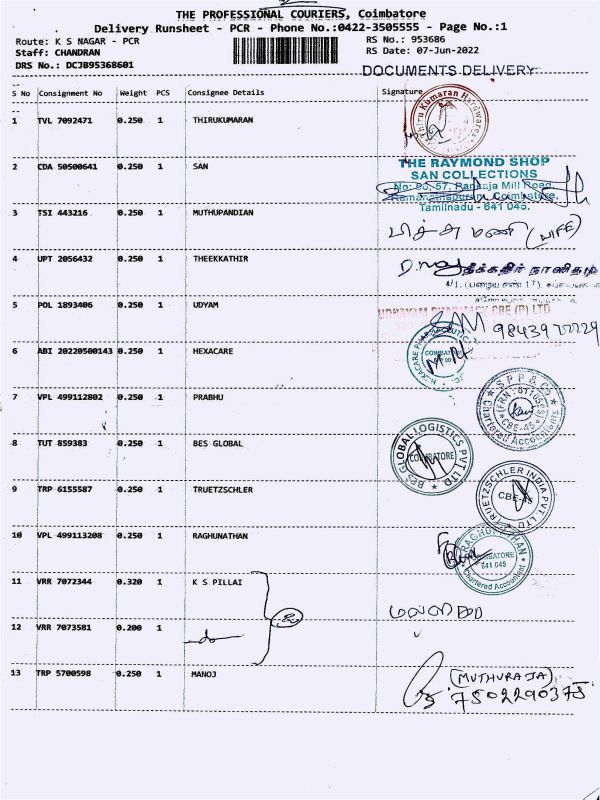 THE PROFESSIONAL COURIERS, Coimbatore
Delivery Runsheet - PCR - Phone No.:0422-3505555 - Page No.:1
Route: K S NAGAR - PCR
RS No.: 953686
Staff: CHANDRAN
RS Date: 07-Jun-2022
DRS No.: DCJB95368601
DOCUMENTS DELIVERY
S No Consignment No Weight PCS Consignee Details Signature
1 TVL 7092471 0.250 1 THIRUKUMARAN
Thiru Kumaran Hardwares
2 CDA 50500641 0.250 1 SAN
THE RAYMOND SHOP
SAN COLLECTIONS
Mill Road,
Coimbatore,
Tamilnadu - 641 045.
3 TSI 443216 0.250 1 MUTHUPANDIAN
(WIFE)
4 UPT 2056432 0.250 1 THEEKKATHIR
தீக்கதிர்
5 POL 1893406 0.250 1 UDYAM
CBE (P) LTD
6 ABI 20220500143 0.250 1 HEXACARE
HEXACARE PHARMACEUTICALS
7 VPL 499112802 0.250 1 PRABHU
S P P & CO
CBE-45
Chartered Accountants
8 TUT 859383 0.250 1 BES GLOBAL
BES GLOBAL LOGISTICS PVT LTD
COIMBATORE
9 TRP 6155587 0.250 1 TRUETZSCHLER
TRUETZSCHLER INDIA PVT LTD
CBE-45
10 VPL 499113208 0.250 1 RAGHUNATHAN
RAGHUNATHAN
COIMBATORE
641 045
Chartered Accountant
11 VRR 7072344 0.320 1 K S PILLAI
12 VRR 7073581 0.200 1
do
13 TRP 5700598 0.250 1 MANOJ
(MUTHURAJA)
7502290375